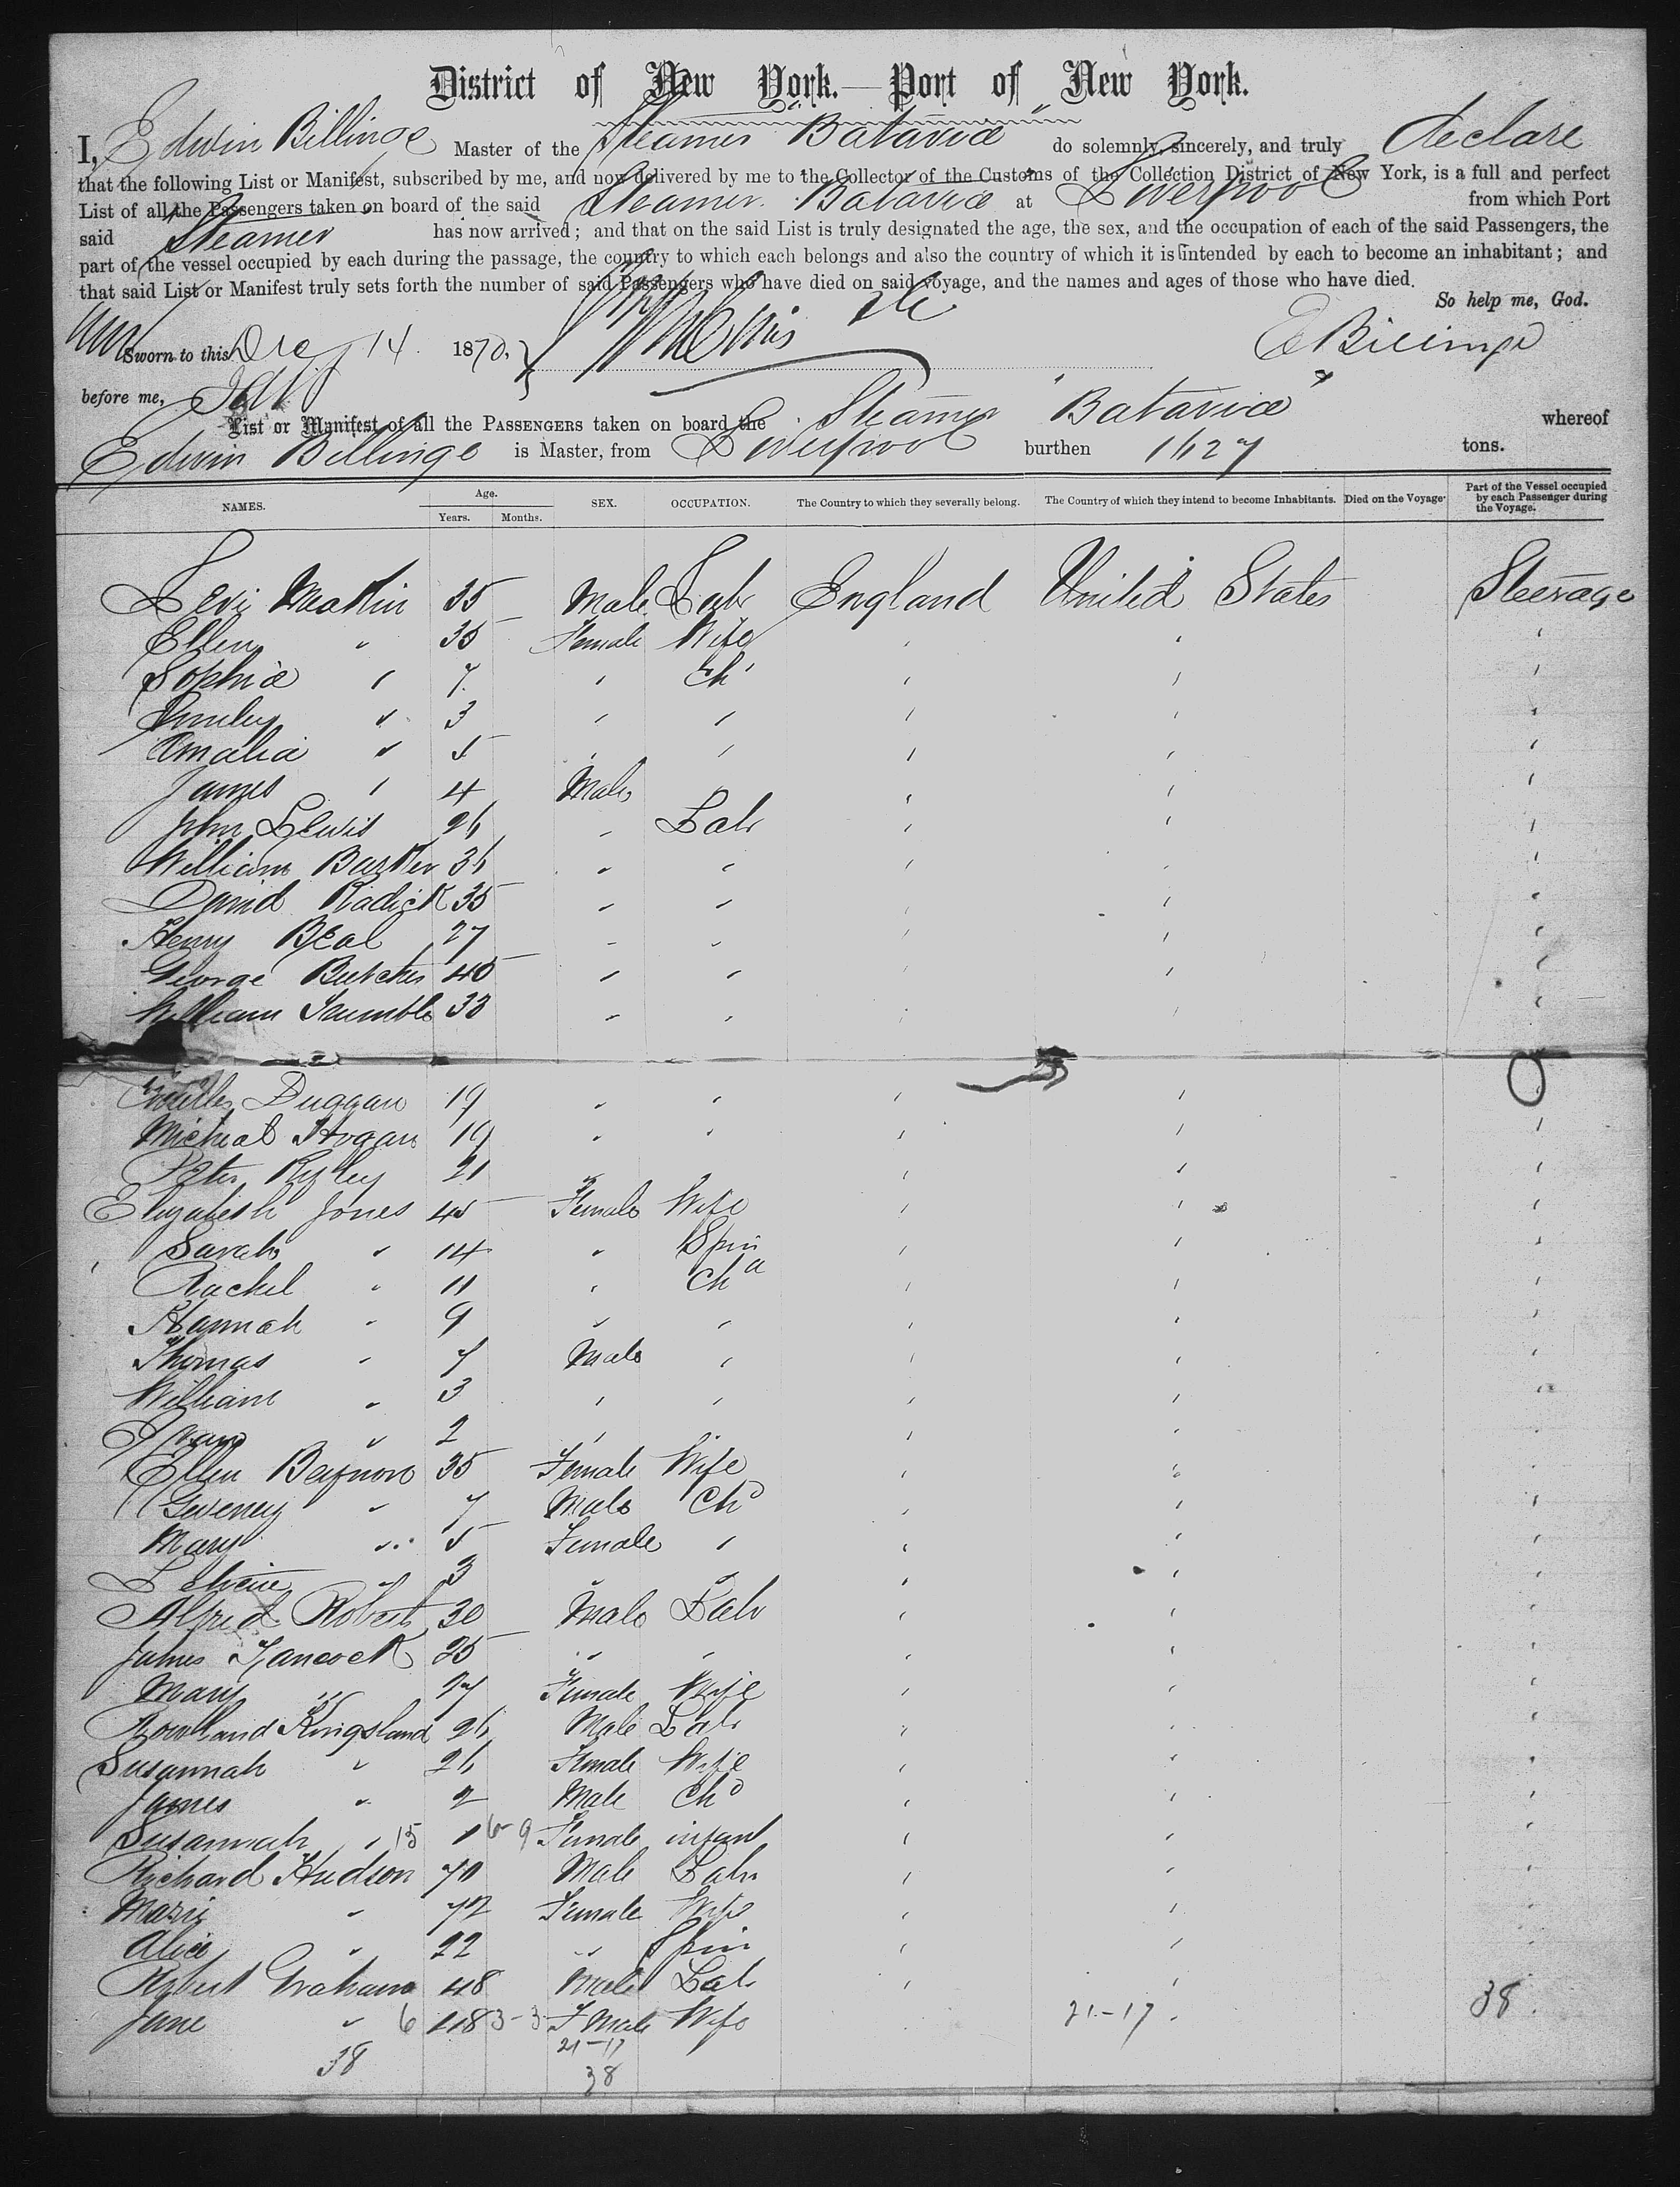 District of New York.—Port of New York.
I, Edwin Billinge Master of the Steamer "Batavia" do solemnly, sincerely, and truly declare
that the following List or Manifest, subscribed by me, and now delivered by me to the Collector of the Customs of the Collection District of New York, is a full and perfect
List of all the Passengers taken on board of the said Steamer Batavia at Liverpool from which Port
said Steamer has now arrived; and that on the said List is truly designated the age, the sex, and the occupation of each of the said Passengers, the
part of the vessel occupied by each during the passage, the country to which each belongs and also the country of which it is intended by each to become an inhabitant; and
that said List or Manifest truly sets forth the number of said Passengers who have died on said voyage, and the names and ages of those who have died.
So help me, God.
Sworn to this Dec 14 1870, E Billinge
before me,
List or Manifest of all the PASSENGERS taken on board the Steamer "Batavia" whereof
Edwin Billinge is Master, from Liverpool burthen 1627 tons.
NAMES. Age. Years. Months. SEX. OCCUPATION. The Country to which they severally belong. The Country of which they intend to become Inhabitants. Died on the Voyage. Part of the Vessel occupied by each Passenger during the Voyage.
Levi Meakin 35 Male Labr England United States Steerage
Ellen " 35 Female Wife " " "
Sophia " 7 " Ch " " "
Emiley " 3 " " " " "
Amalia " 5 " " " " "
James " 4 Male " " "
John Lewis 26 " Labr " " "
William Barker 36 " " " " "
David Radick 35 " " " " "
Henry Beal 27 " " " " "
George Butcher 40 " " " " "
William Trumble 33 " " " " "
Duggan 19 " " " " "
Micheal Hogan 19 " " " " "
Peter 21 " " "
Elizabeth Jones 45 Female Wife " " "
Sarah " 14 " Spin " " "
Rachel " 11 " Chd " " "
Hannah " 9 " " " " "
Thomas " 7 Male " " " "
William " 3 " " " " "
" 2 " " " "
Ellen Baynon 35 Female Wife " " "
" 7 Male Chd " " "
Mary " 5 Female " " " "
" 3 " " " " "
Alfred Roberts 30 Male Labr " " "
James Hancock 25 " " " " "
Mary " 27 Female Wife " " "
Rowland Kingsland 26 Male Labr " " "
Susannah " 26 Female Wife " " "
James " 2 Male Chd " " "
Susannah " 15 1 6-9 Female infant " " "
Richard Hudson 70 Male Labr " " "
" 72 Female Wife " " "
Alice " 22 " Spin " " "
Robert Graham 48 Male Labr " " "
Jane " 6 48 3-3 Female Wife 21-17 38
38 21-17
38